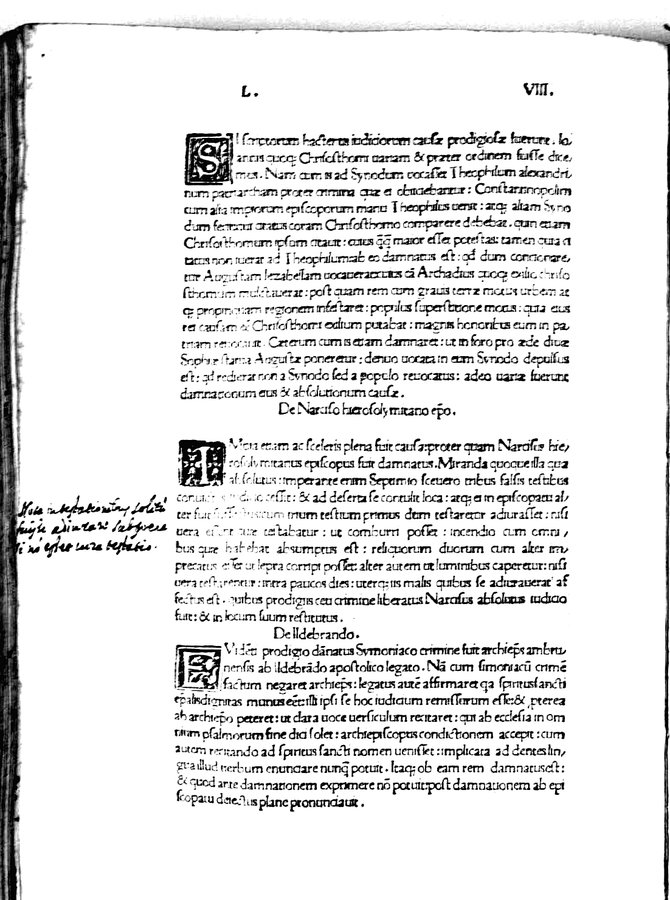 L. VIII.
SI scriptorum hactenus iudiciorum causæ prodigiosæ fuerunt. Io
annis quoq; Chrisosthomi uariam & præter ordinem fuisse dice
mus. Nam cum is ad Synodum uocasset Theophilum alexandri,
num patriarcham propter crimina quæ ei obiiciebantur: Constantinopolim
cum alia impiorum episcoporum manu Theophilus uenit: atq; aliam Syno
dum coram Chrisosthomo comparere debebat, quin etiam
Chrisosthomum ipsum citauit: cuius q̃q̃ maior esset potestas: tamen quia ci
tatus non fuerat ad Theophilum ab eo damnatus est: qd dum concionare,
tur Augustam Iezabellam Archadius quoq; exilio chriso
sthomum mulctauerat: post quam rem cum grauis terræ motus urbem at
q; propinquam regionem infestaret: populus superstitione motus: quia eius
rei causam eē Chrisosthomi exilium putabat: magnis honoribus eum in pa,
triam reuocauit. Cæterum cum is etiam damnaret: ut in foro pro æde diuæ
Sophiæ statua Augustæ poneretur: denuo uocata in eum Synodo depulsus
est: qd redierat non a Synodo sed a populo reuocatus: adeo uariæ fuerunt
damnationum eius & absolutionum causæ.
De Narciso hierosolymitano epo.
Mira etiam ac sceleris plena fuit causa: propter quam Narcisus hie,
rosolymitanus episcopus fuit damnatus. Miranda quoque illa qua
absolutus: imperante enim Septimio seuero tribus falsis testibus
& ad deserta se contulit loca: atq; in episcopatu al,
ter trium testium primus dem testaretur adiurasset: nisi
uera testabatur: ut comburi posset: incendio cum omni,
bus quæ habebat absumptus est: reliquorum duorum cum alter im,
precatus esset ut lepra corripi posset: alter autem ut luminibus caperetur: nisi
uera testarentur: intra paucos dies: uterq; iis malis quibus se adiurauerat af
fectus est. quibus prodigiis ceu crimine liberatus Narcisus absolutus iudicio
fuit: & in locum suum restitutus.
De Ildebrando.
EVidēti prodigio dãnatus Symoniaco crimine fuit archiēps ambru,
nensis ab ildebrãdo apostolico legato. Nã cum simoniacū crimē
factum negaret archiēps: legatus autē affirmaret qa spiritussancti
epālis dignitas munus eēt: illi ipsi se hoc iudicium remissurum esse: & pterea
ab archiepo peteret: ut clara uoce uersiculum recitaret: qui ab ecclesia in om
nium psalmorum fine dici solet: archiepiscopus conditionem accepit: cum
autem recitando ad spiritus sancti nomen uenisset: implicata ad dentes lin,
gua illud uerbum enunciare nunq̃ potuit. Itaq; ob eam rem damnatus est:
& quod ante damnationem exprimere nõ potuit: post damnationem ab epi
scopatu deiectus plane pronunciauit.